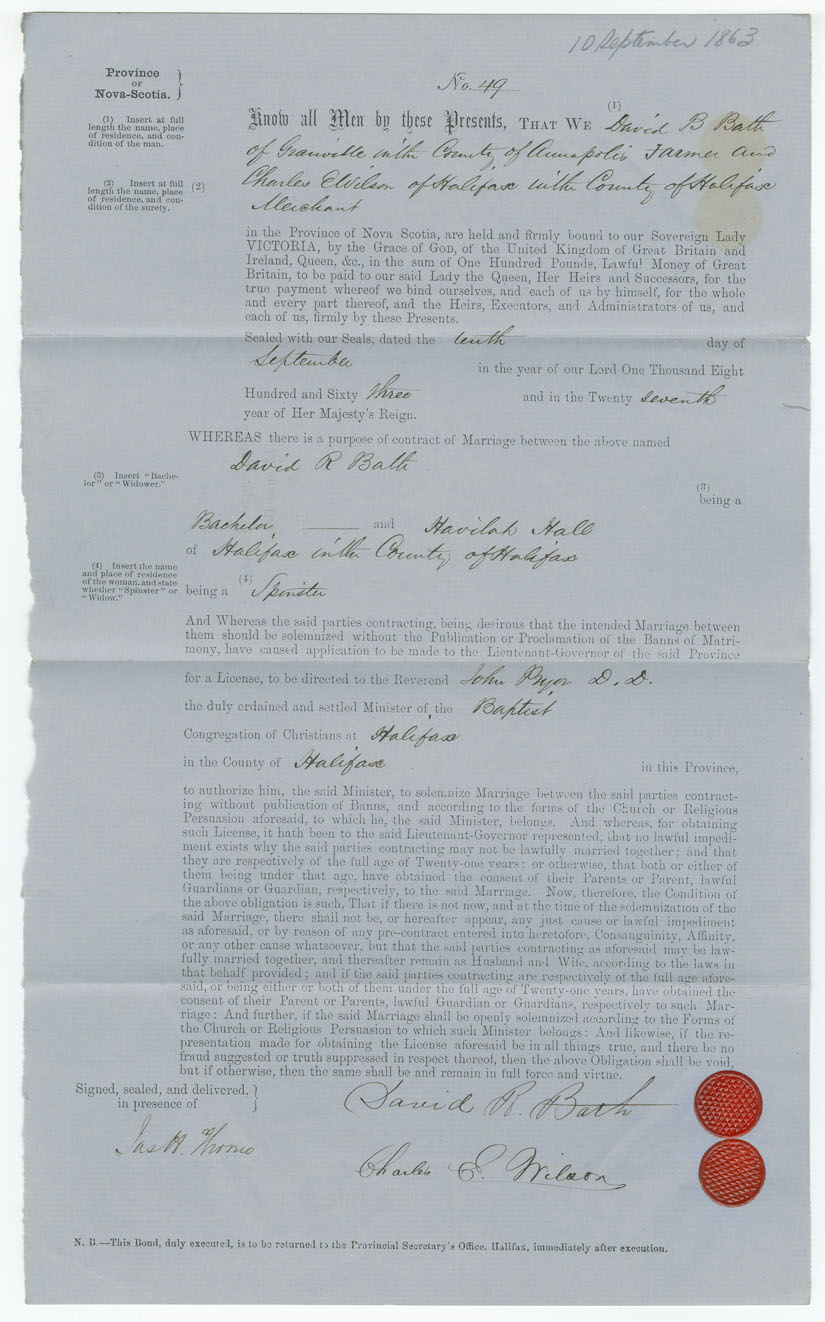 10 September 1863
Province
OF
Nova-Scotia.
No. 49
(1) Insert at full
length the name, place
of residence, and con-
dition of the man.
(1)
Know all Men by these Presents, THAT WE David B Bath
of Granville in the County of Annapolis Farmer and
(2) Insert at full
length the name, place
of residence, and con-
dition of the surety.
(2)
Charles E Wilson of Halifax in the County of Halifax
Merchant
in the Province of Nova Scotia, are held and firmly bound to our Sovereign Lady
VICTORIA, by the Grace of GOD, of the United Kingdom of Great Britain and
Ireland, Queen, &c., in the sum of One Hundred Pounds, Lawful Money of Great
Britain, to be paid to our said Lady the Queen, Her Heirs and Successors, for the
true payment whereof we bind ourselves, and each of us by himself, for the whole
and every part thereof, and the Heirs, Executors, and Administrators of us, and
each of us, firmly by these Presents.
Sealed with our Seals, dated the tenth day of
September in the year of our Lord One Thousand Eight
Hundred and Sixty three and in the Twenty seventh
year of Her Majesty's Reign.
WHEREAS there is a purpose of contract of Marriage between the above named
David R Bath
(3) Insert "Bache-
lor" or "Widower."
(3)
being a
Bachelor and Havilah Hall
of Halifax in the County of Halifax
(4) Insert the name
and place of residence
of the woman, and state
whether "Spinster" or
"Widow."
being a (4) Spinster
And Whereas the said parties contracting, being desirous that the intended Marriage between
them should be solemnized without the Publication or Proclamation of the Banns of Matri-
mony, have caused application to be made to the Lieutenant-Governor of the said Province
for a License, to be directed to the Reverend John Pryor D. D.
the duly ordained and settled Minister of the Baptist
Congregation of Christians at Halifax
in the County of Halifax in this Province,
to authorize him, the said Minister, to solemnize Marriage between the said parties contract-
ing without publication of Banns, and according to the forms of the Church or Religious
Persuasion aforesaid, to which he, the said Minister, belongs. And whereas, for obtaining
such License, it hath been to the said Lieutenant-Governor represented, that no lawful impedi-
ment exists why the said parties contracting may not be lawfully married together; and that
they are respectively of the full age of Twenty-one years; or otherwise, that both or either of
them being under that age, have obtained the consent of their Parents or Parent, lawful
Guardians or Guardian, respectively, to the said Marriage. Now, therefore, the Condition of
the above obligation is such, That if there is not now, and at the time of the solemnization of the
said Marriage, there shall not be, or hereafter appear, any just cause or lawful impediment
as aforesaid, or by reason of any pre-contract entered into heretofore, Consanguinity, Affinity,
or any other cause whatsoever, but that the said parties contracting as aforesaid may be law-
fully married together, and thereafter remain as Husband and Wife, according to the laws in
that behalf provided; and if the said parties contracting are respectively of the full age afore-
said, or being either or both of them under the full age of Twenty-one years, have obtained the
consent of their Parent or Parents, lawful Guardian or Guardians, respectively to such Mar-
riage: And further, if the said Marriage shall be openly solemnized according to the Forms of
the Church or Religious Persuasion to which such Minister belongs: And likewise, if the re-
presentation made for obtaining the License aforesaid be in all things true, and there be no
fraud suggested or truth suppressed in respect thereof, then the above Obligation shall be void,
but if otherwise, then the same shall be and remain in full force and virtue.
Signed, sealed, and delivered,
in presence of
David R. Bath
Jas H. Thorne
Charles E. Wilson
N. B.—This Bond, duly executed, is to be returned to the Provincial Secretary's Office, Halifax, immediately after execution.